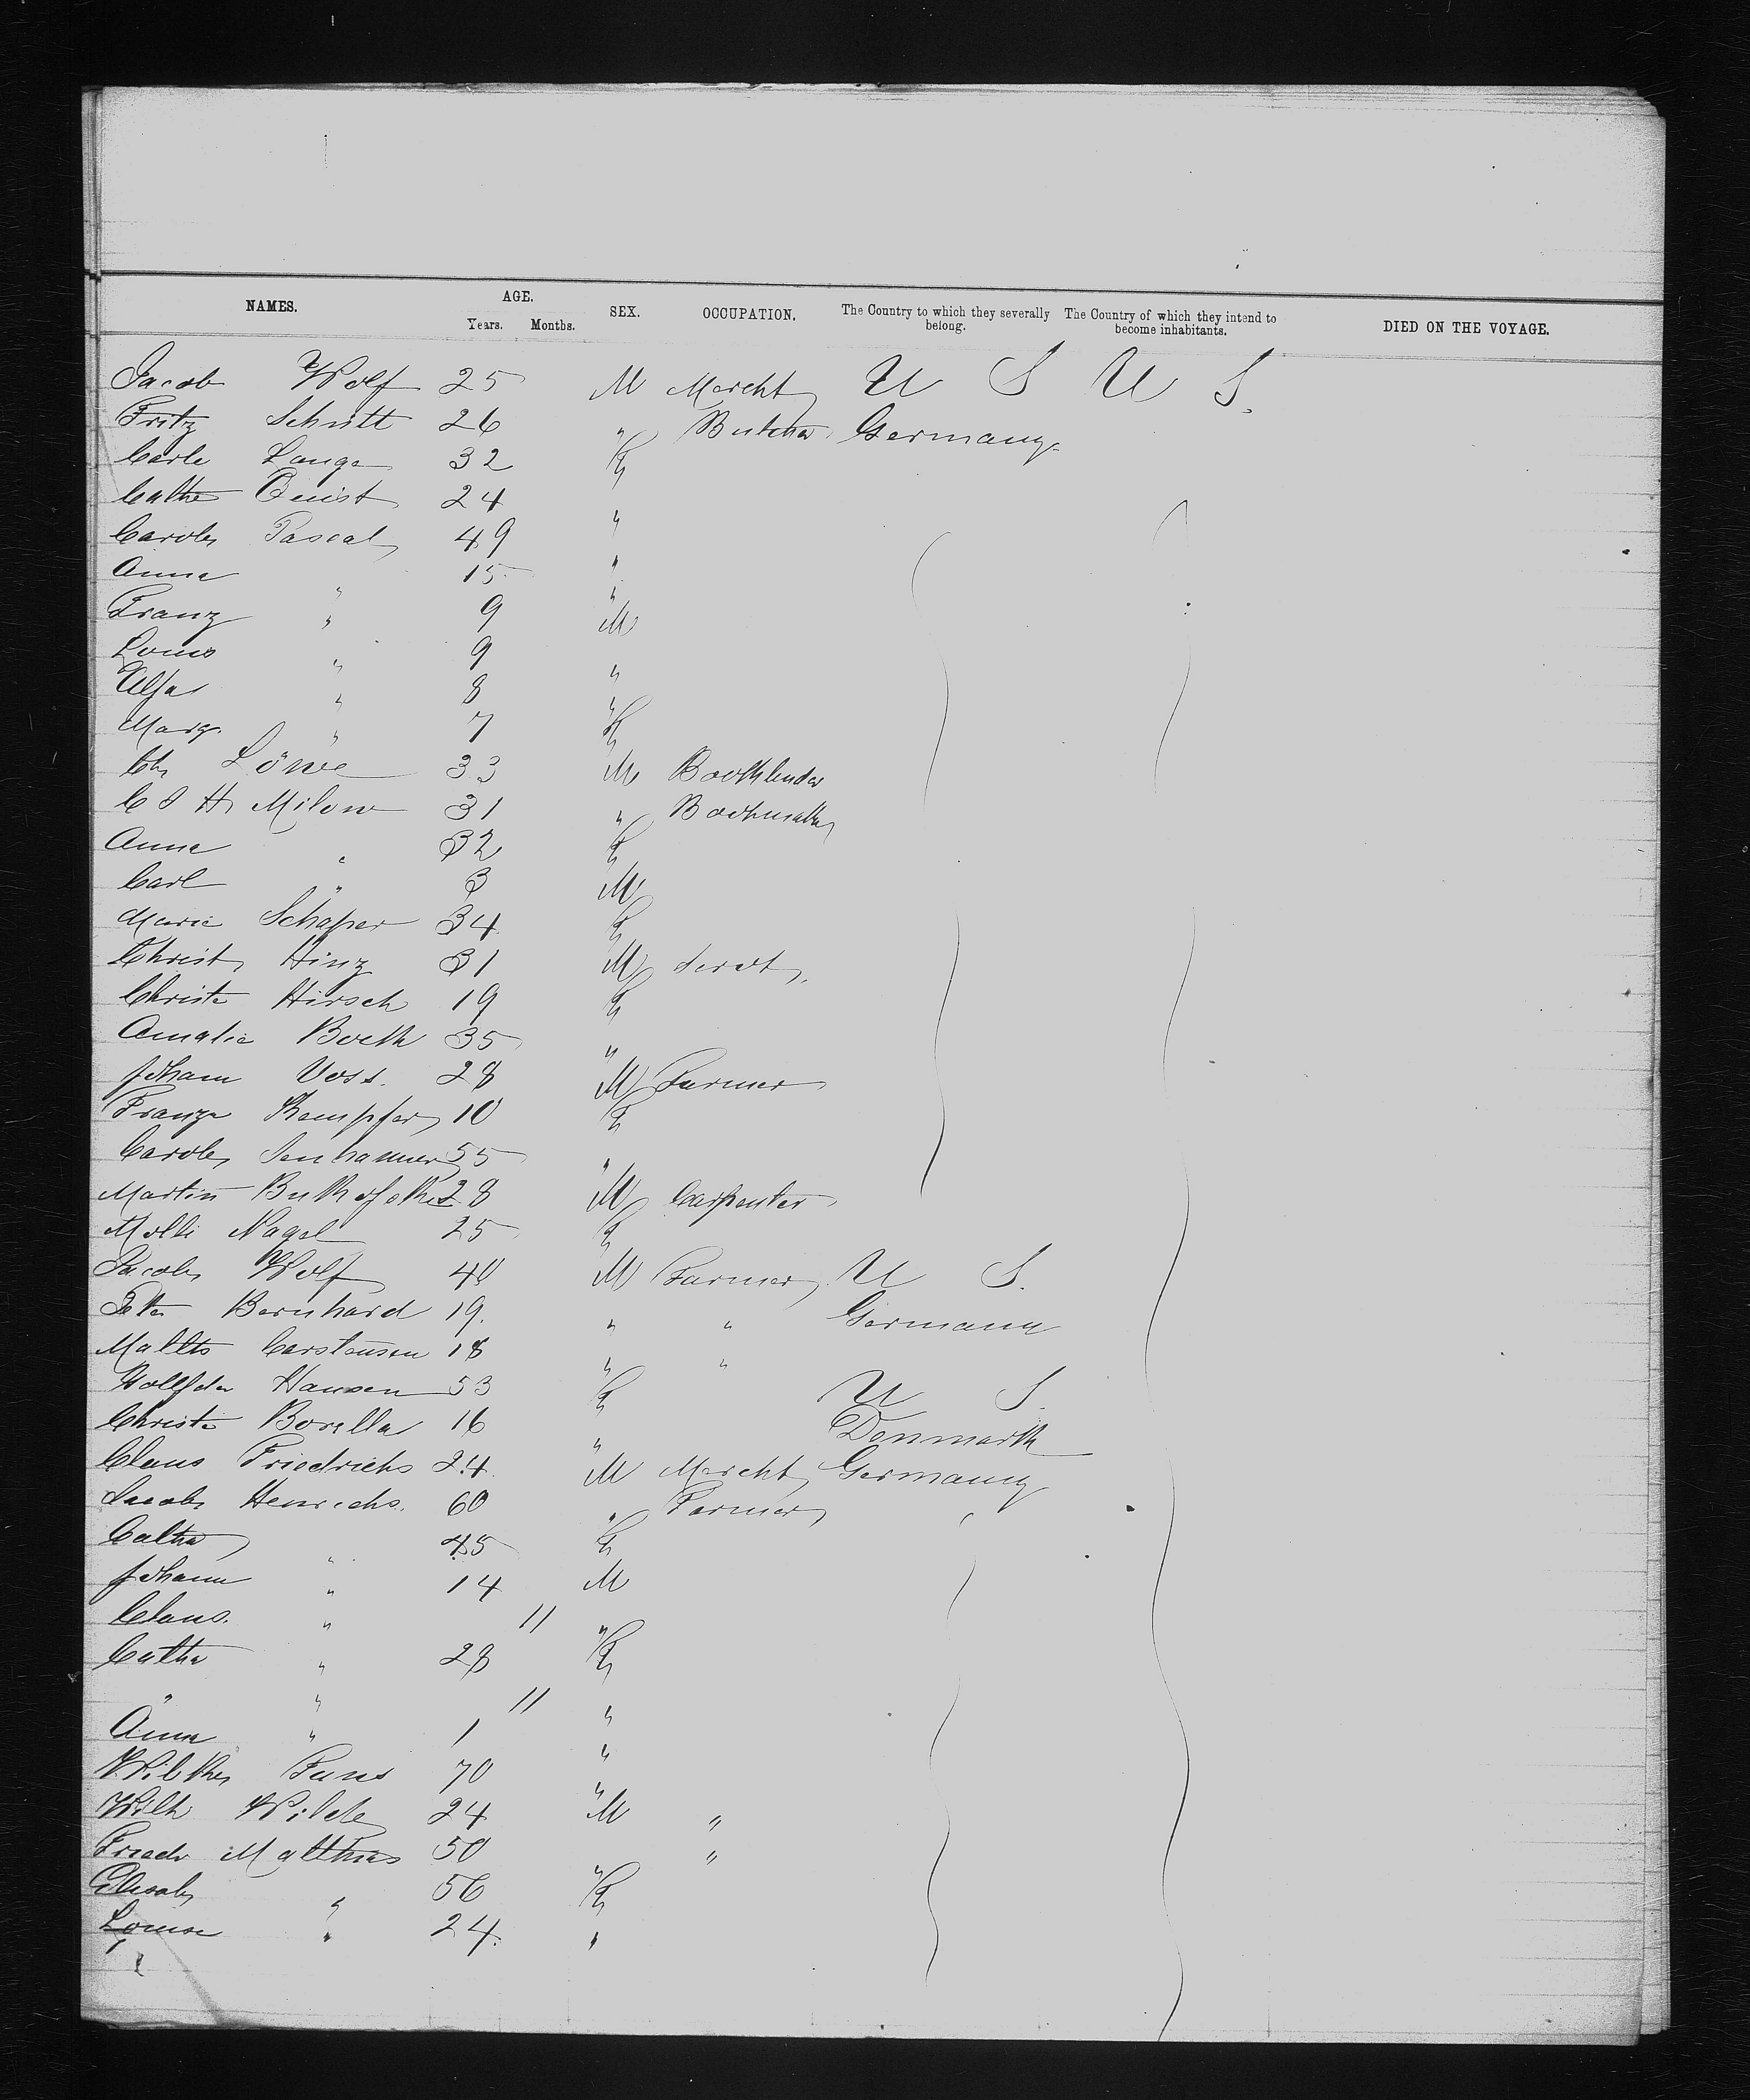 NAMES. AGE. SEX. OCCUPATION. The Country to which they severally belong. The Country of which they intend to become inhabitants. DIED ON THE VOYAGE.
Years. Months.
Jacob Wolf 25 M Mercht U S U S.
Fritz Schütt 26 " Butcher Germany
Carle Lange 32 F
Cathe Quist 24 "
Carole Pascal 49 "
Anna " 15 "
Franz " 9 M
Louis " 9 "
" 8 "
Marg. " 7 F
Chr Löwe 33 M
C J H Milow 31 "
Anna " 32 F
Carl " 3 M
Marie Schaper 34 F
Christ Hinz 31 M Servt.
Christe Hirsch 19 F
Amalie Boeth 35 "
Joham Voss. 28 M Farmer
Franze Kempfer 10 F
Carole 55 "
Martin 28 M Carpenter
Molli Nagel 25 F
Jacob Wolf 40 M Farmer U S.
Peter Bernhard 19. " " Germany
Carstensen 18 " "
Hansen 53 F U S.
Christe Borella 16 " Denmark
Claus Friedrichs 24. M Mercht Germany
Jacob Henrichs. 60 " Farmer
Catha " 45 F
Johann " 14 M
Claus. " 11 "
Catha " 28 F
" " 11 "
Anna " 1 "
Funs 70 "
Wilh Wilde 24 M "
Friedr Matthies 50 " "
Elisab " 56 F
Louise " 24. "